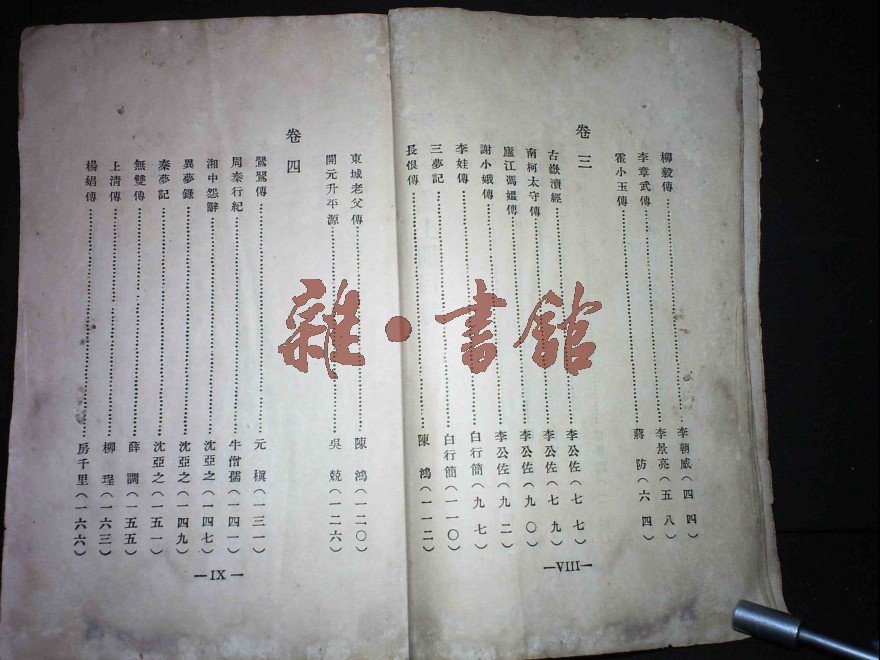 柳毅傳……李朝威(四四)
李章武傳……李景亮(五八)
霍小玉傳……蔣 防(六四)
卷三
古嶽瀆經……李公佐(七七)
南柯太守傳……李公佐(七九)
廬江馮媼傳……李公佐(九〇)
謝小娥傳……李公佐(九二)
李娃傳……白行簡(九七)
三夢記……白行簡(一一〇)
長恨傳……陳 鴻(一一二)
—VIII—
東城老父傳……陳 鴻(一二〇)
開元升平源……吳 兢(一二六)
卷四
鶯鶯傳……元 稹(一三一)
周秦行紀……牛僧孺(一四一)
湘中怨辭……沈亞之(一四七)
異夢錄……沈亞之(一四九)
秦夢記……沈亞之(一五一)
無雙傳……薛 調(一五五)
上清傳……柳 珵(一六三)
楊娼傳……房千里(一六六)
—IX—
雜·書館